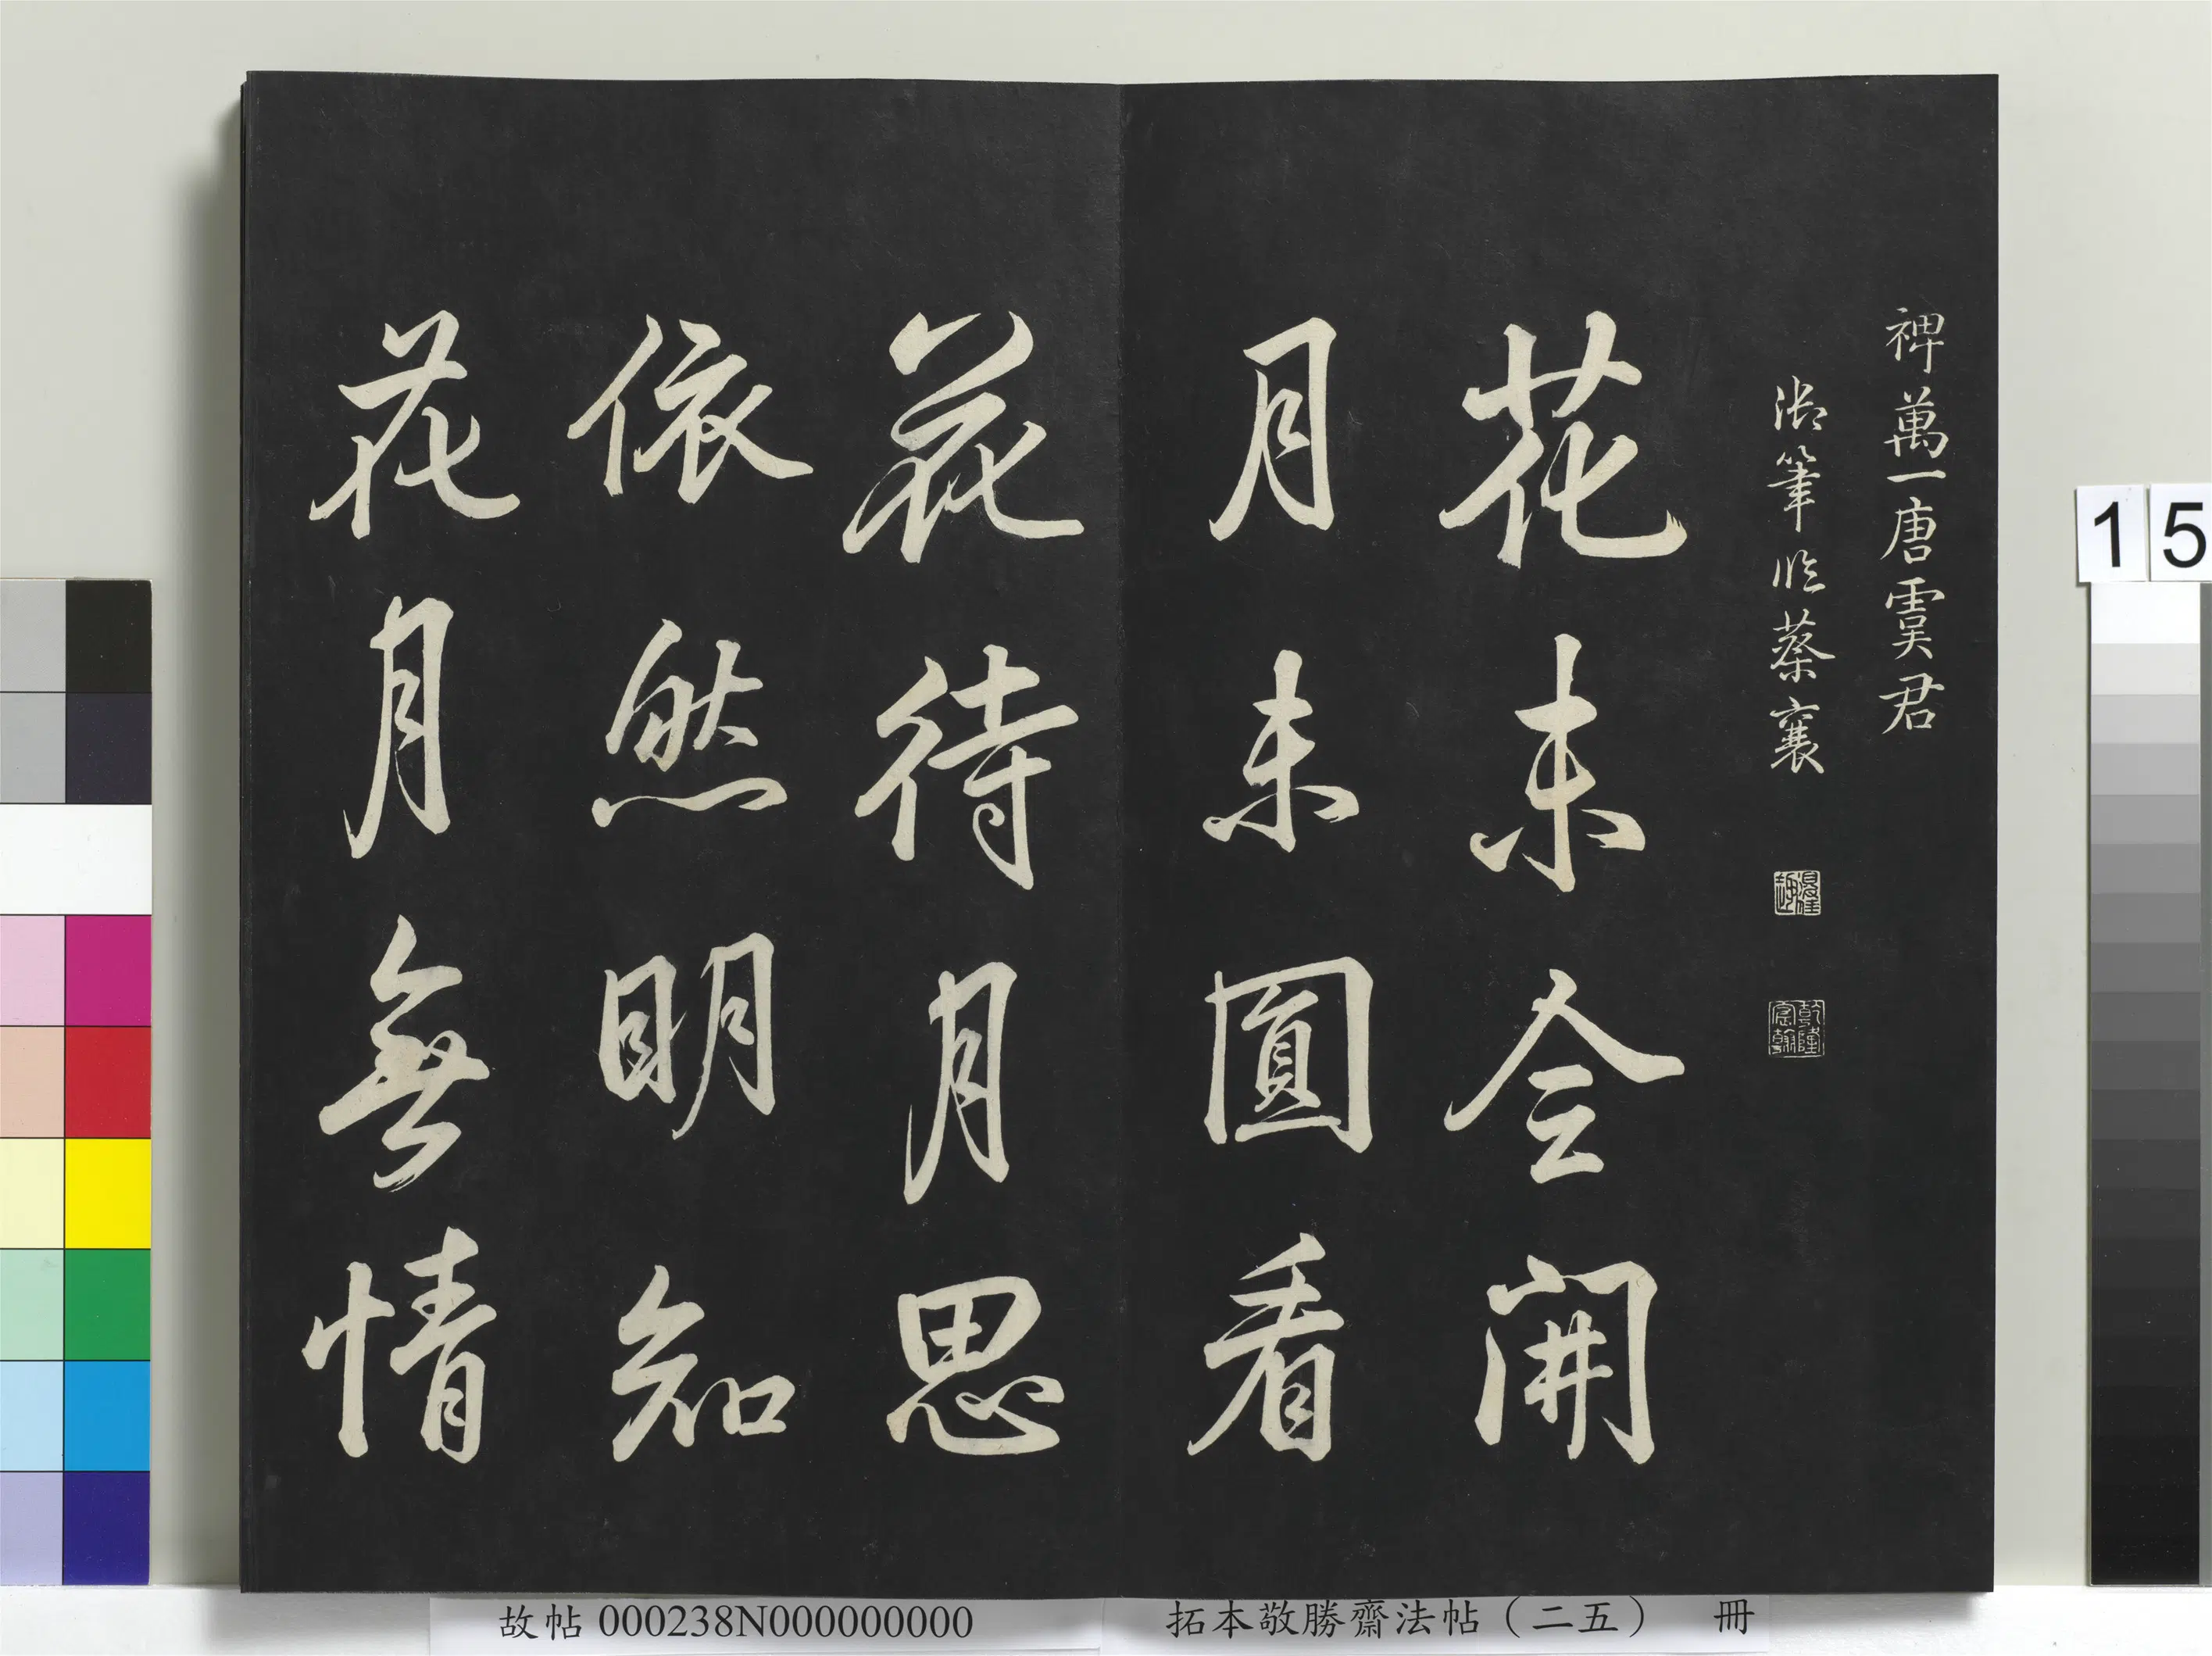 裨萬一唐虞君
御筆臨蔡襄
乾隆
宸翰
花未全開
月未圓看
花待月思
依然明知
花月無情
15
故帖 000238N000000000
拓本敬勝齋法帖（二五） 冊